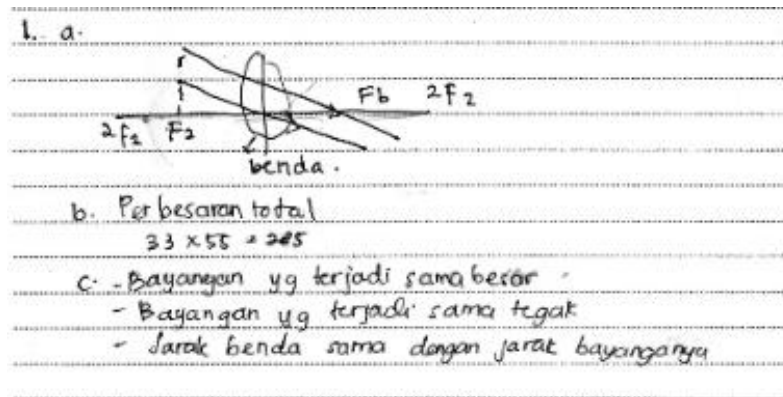 1. a.
Fb 2F2
2F2 F2
benda.
b. Perbesaran total
33 x 55 = 285
c. - Bayangan yg terjadi sama besar
- Bayangan yg terjadi sama tegak
- Jarak benda sama dengan jarak bayanganya